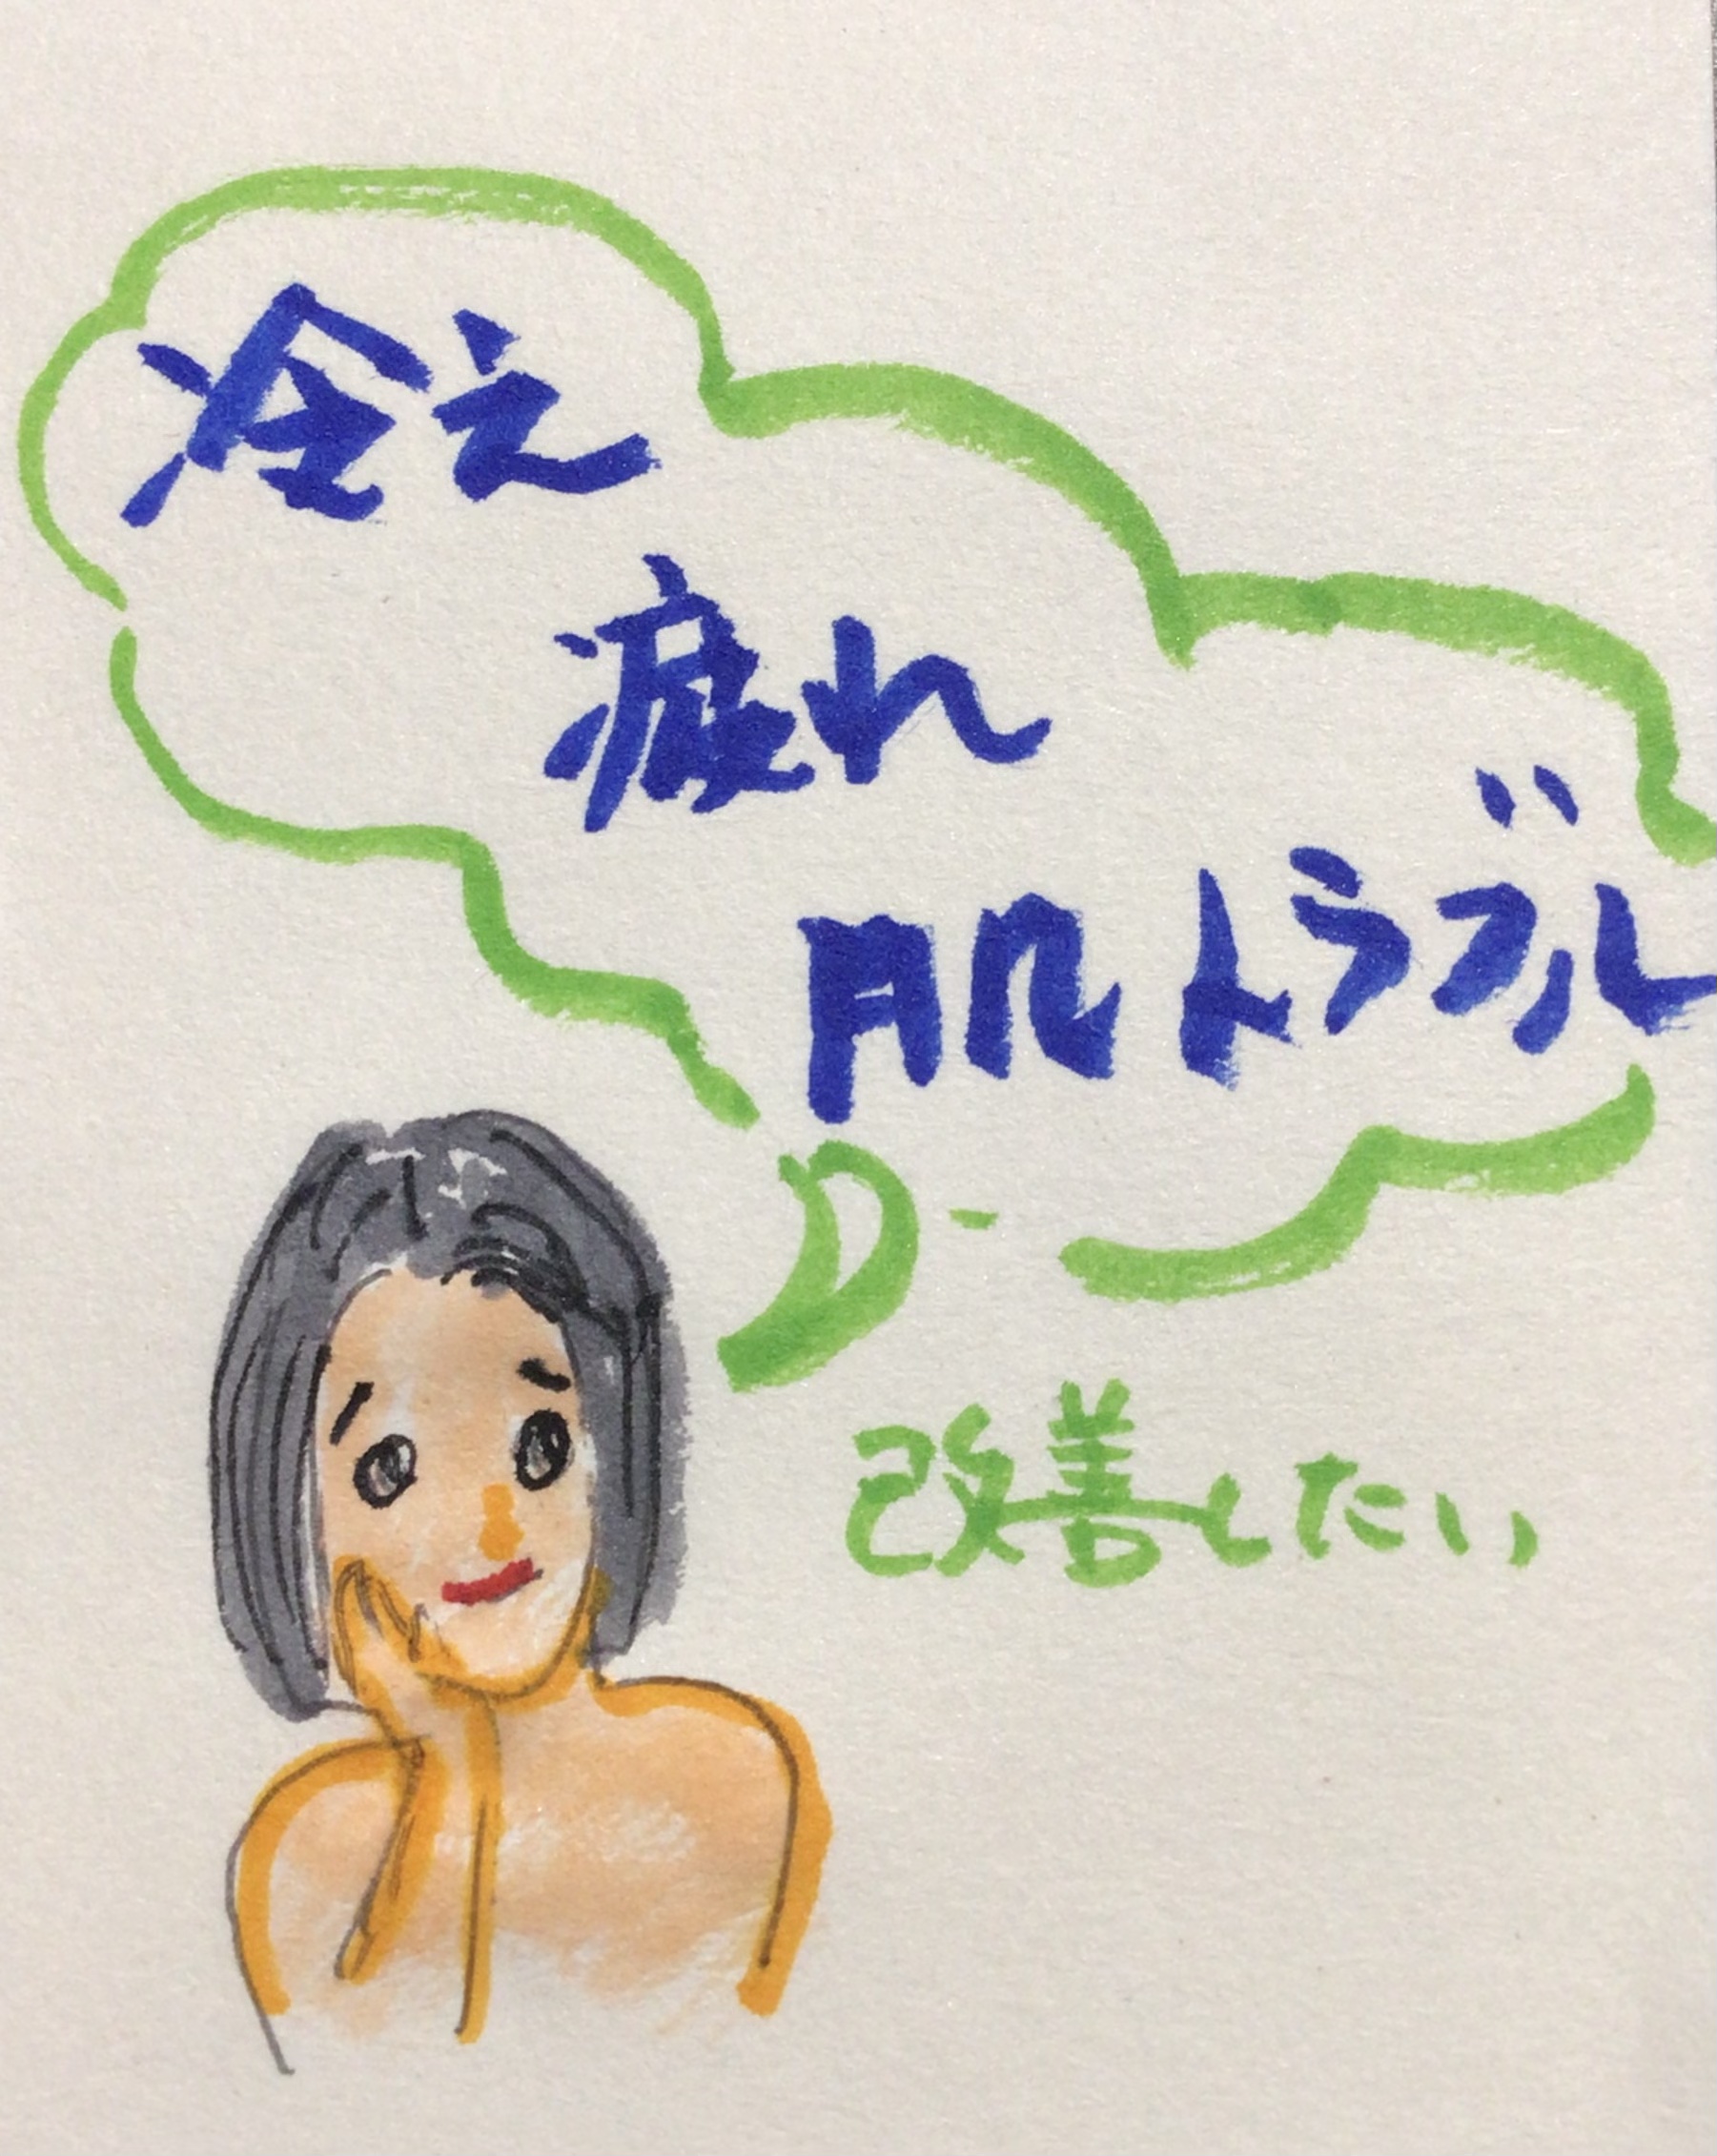 冷え
疲れ
肌トラブル
改善したい